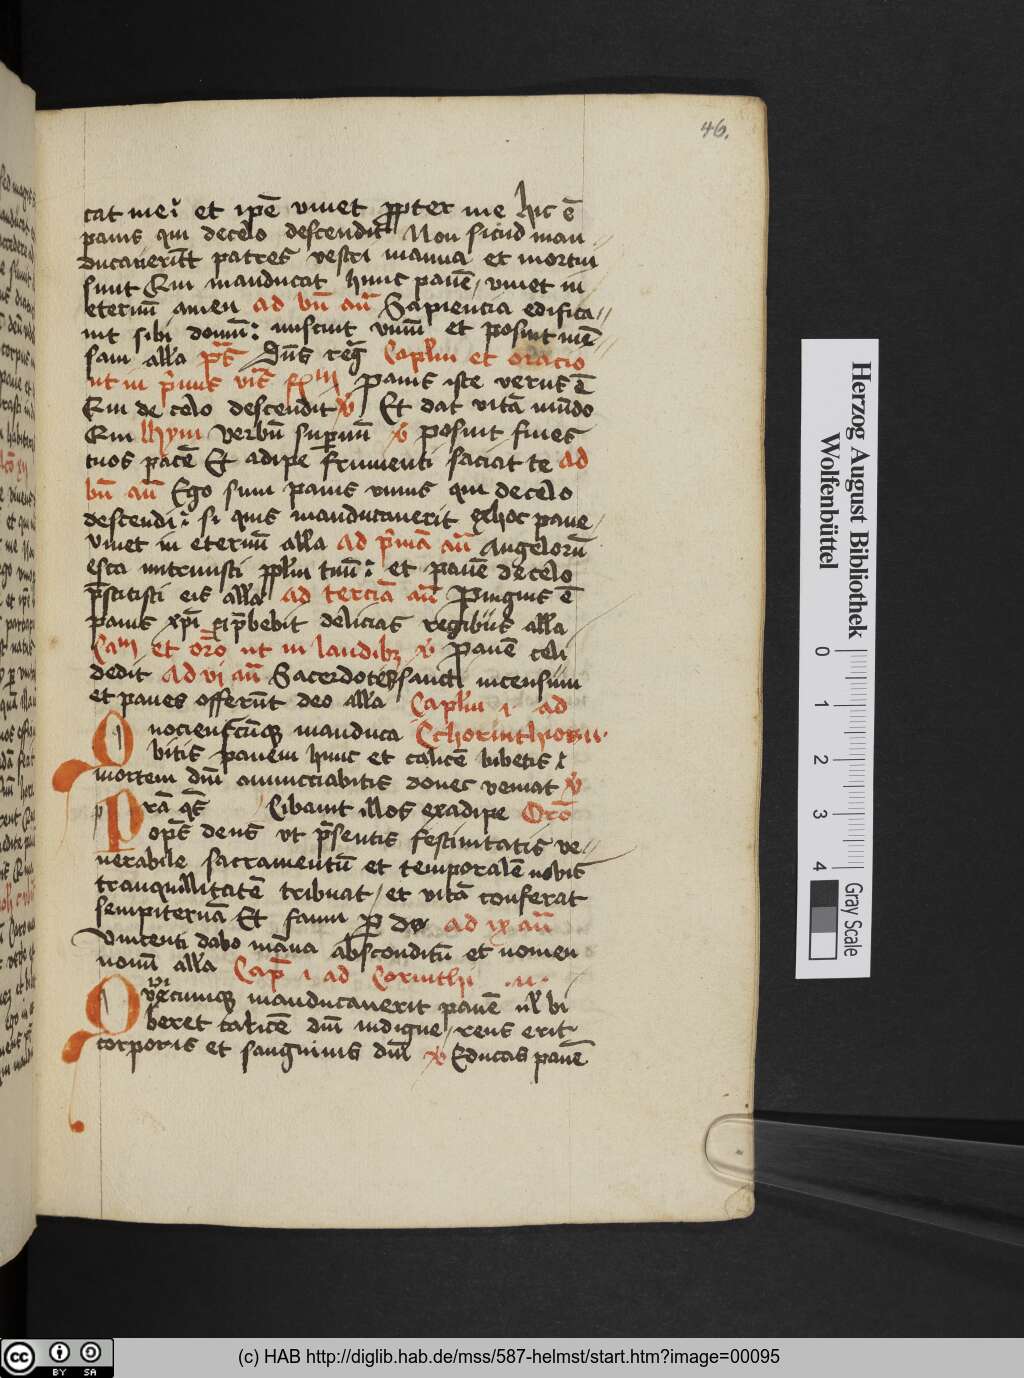 46.
cat me ⁊ et ip̄e viuet ꝓpter me hic ē
panis qui de celo descendit Non sicud man
ducauerūt patres vestri manna et mortui
sunt Qui manducat hunc panē viuet in
eternū amen ad bn̄ an̄ Sapiencia edifica
uit sibi domū: miscuit vinū et posuit mē
sam all'a p̄s Dn̄s reḡ Capl'm et oracio
ut in p̄mis panis iste verus ē
Qui de celo descendit v̄ Et dat vitā mūdo
Qui Hym verbū supnū v̄ posuit fines
tuos pacē Et adipe frumenti saciat te ad
bn̄ an̄ Ego sum panis viuus qui de celo
descendi: si quis manducauerit ex hoc pane
viuet in eternū all'a ad p̄mā an̄ Angelorū
esca nutriuisti ppl'm tuū: et panē de celo
p̄stitisti eis all'a ad terciā an̄ Pinguis ē
panis xp̄i ⁊ p̄bebit delicias regibus all'a
Cam et oro ut in laudibꝫ v̄ Panē celi
dedit Ad vi an̄ Sacerdotes sancti incensum
et panes offerūt deo all'a Capl'm i ad
Quociensc̄uqꝫ manduca Cchorinthiorum
bitis panem hunc et calicē bibetis
mortem dn̄i annucciabitis donec veniat v̄
Cibauit illos ex adipe Oro
deus vt p̄sentis festiuitatis ve
nerabile sacramentū et temporalē nobis
tranquillitatē tribuat et vitā conferat
sempiternā Et ad ix an̄
Vincenti dabo manna absconditū et nomen
nouū all'a Cap̄ i ad Corinthi .ii.
Quicumqꝫ manducauerit panē ul' bi
beret calicē dn̄i indigne reus erit
corporis et sanguinis dn̄i v̄ Educas panē
Herzog August Bibliothek
Wolfenbüttel
0 1 2 3 4
Gray Scale
cc BY SA
(c) HAB http://diglib.hab.de/mss/587-helmst/start.htm?image=00095